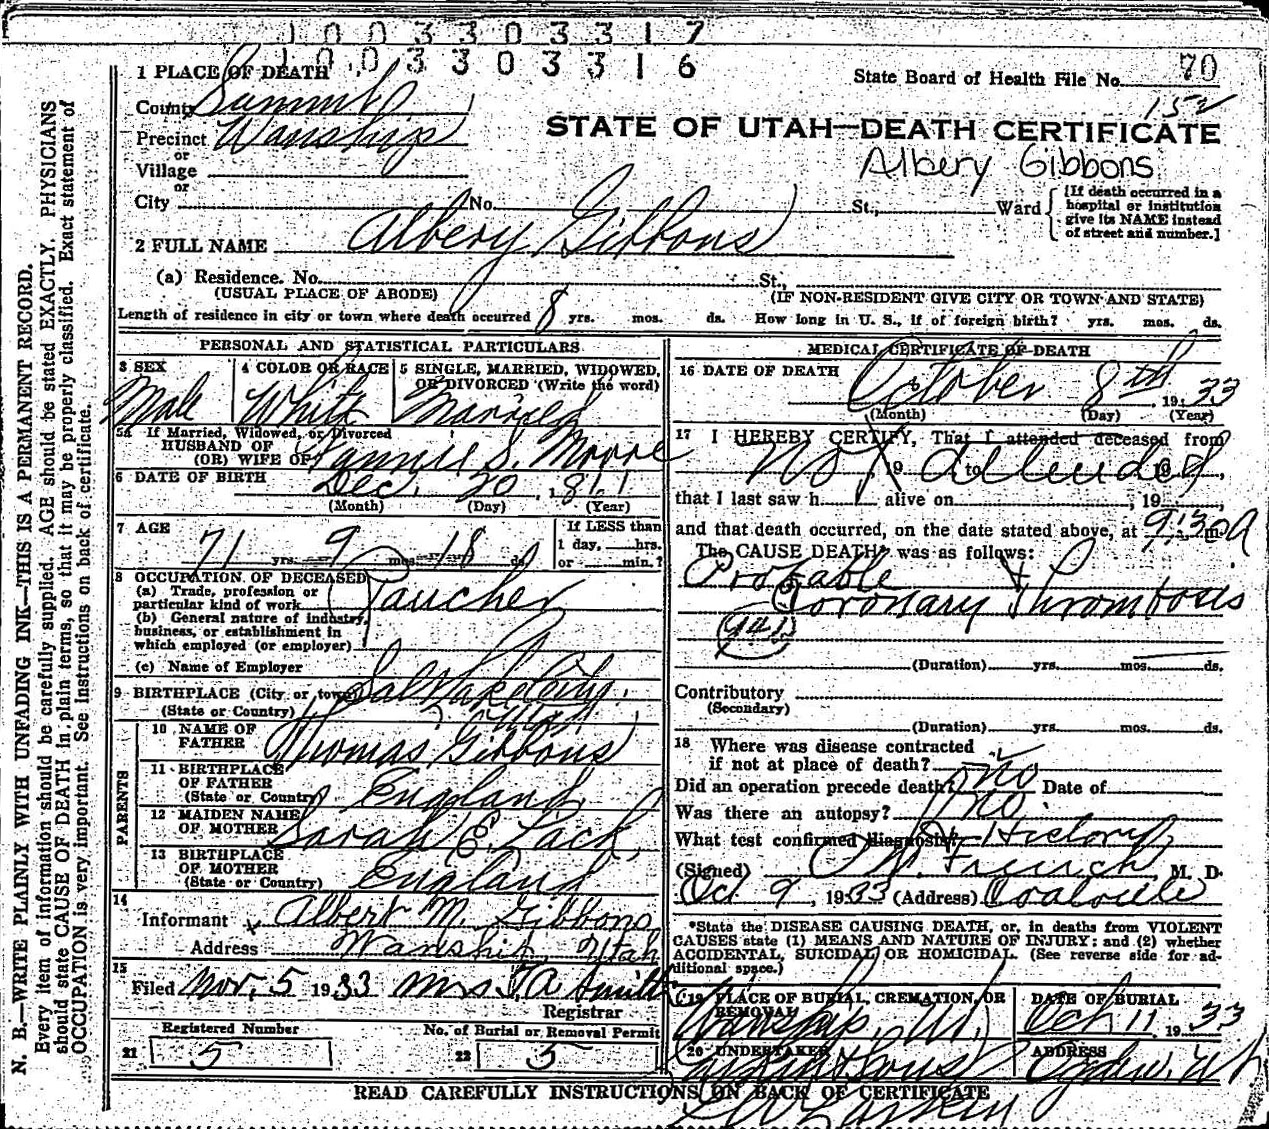 1 0 0 3 3 0 3 3 1 7
1 0 0 3 3 0 3 3 1 6
1 PLACE OF DEATH
State Board of Health File No. 70
County Summit
152
Precinct Wanship
STATE OF UTAH—DEATH CERTIFICATE
or
Albery Gibbons
Village
or
City No. St., Ward
[If death occurred in a hospital or institution give its NAME instead of street and number.]
2 FULL NAME Albery Gibbons
(a) Residence. No. St.,
(USUAL PLACE OF ABODE) (IF NON-RESIDENT GIVE CITY OR TOWN AND STATE)
Length of residence in city or town where death occurred 8 yrs. mos. ds. How long in U. S., if of foreign birth? yrs. mos. ds.
PERSONAL AND STATISTICAL PARTICULARS
3 SEX
Male
4 COLOR OR RACE
White
5 SINGLE, MARRIED, WIDOWED,
OR DIVORCED (Write the word)
Married
5a If Married, Widowed, or Divorced
HUSBAND OF
(OR) WIFE OF Fannie S. Moore
6 DATE OF BIRTH Dec. 20, 1861
(Month) (Day) (Year)
7 AGE
71 yrs. 9 mos. 18 ds.
If LESS than
1 day, hrs.
or min.?
8 OCCUPATION OF DECEASED
(a) Trade, profession or
particular kind of work Rancher
(b) General nature of industry,
business, or establishment in
which employed (or employer)
(c) Name of Employer
9 BIRTHPLACE (City or town) Salt Lake City.
(State or Country) Utah
PARENTS
10 NAME OF
FATHER Thomas Gibbons
11 BIRTHPLACE
OF FATHER
(State or Country) England
12 MAIDEN NAME
OF MOTHER Sarah E. Lack
13 BIRTHPLACE
OF MOTHER
(State or Country) England
14
Informant x Albert M. Gibbons
Address Wanship, Utah
15
Filed Nov. 5 1933 Mrs F. A. Smith
Registrar
Registered Number
21 5
No. of Burial or Removal Permit
22 5
MEDICAL CERTIFICATE OF DEATH
16 DATE OF DEATH October 8th 1933
(Month) (Day) (Year)
17 I HEREBY CERTIFY, That I attended deceased from
Not 19 to attended 19
that I last saw h alive on , 19
and that death occurred, on the date stated above, at 9:30 a m.
The CAUSE DEATH* was as follows:
Probable
Coronary Thrombosis
94b
(Duration) yrs. mos. ds.
Contributory
(Secondary)
(Duration) yrs. mos. ds.
18 Where was disease contracted
if not at place of death?
Did an operation precede death? no Date of
Was there an autopsy? no.
What test confirmed diagnosis? History
(Signed) French M. D.
Oct 9, 1933 (Address) Coalville
*State the DISEASE CAUSING DEATH, or, in deaths from VIOLENT
CAUSES state (1) MEANS AND NATURE OF INJURY; and (2) whether
ACCIDENTAL, SUICIDAL, OR HOMICIDAL. (See reverse side for ad-
ditional space.)
19 PLACE OF BURIAL, CREMATION, OR
REMOVAL
Wanship, Ut.
DATE OF BURIAL
Oct 11 1933
20 UNDERTAKER
Larkin & Sons
ADDRESS
Ogden, Ut
READ CAREFULLY INSTRUCTIONS ON BACK OF CERTIFICATE
Larkin
N. B.—WRITE PLAINLY WITH UNFADING INK—THIS IS A PERMANENT RECORD.
Every item of information should be carefully supplied. AGE should be stated EXACTLY. PHYSICIANS
should state CAUSE OF DEATH in plain terms, so that it may be properly classified. Exact statement of
OCCUPATION is very important. See instructions on back of certificate.